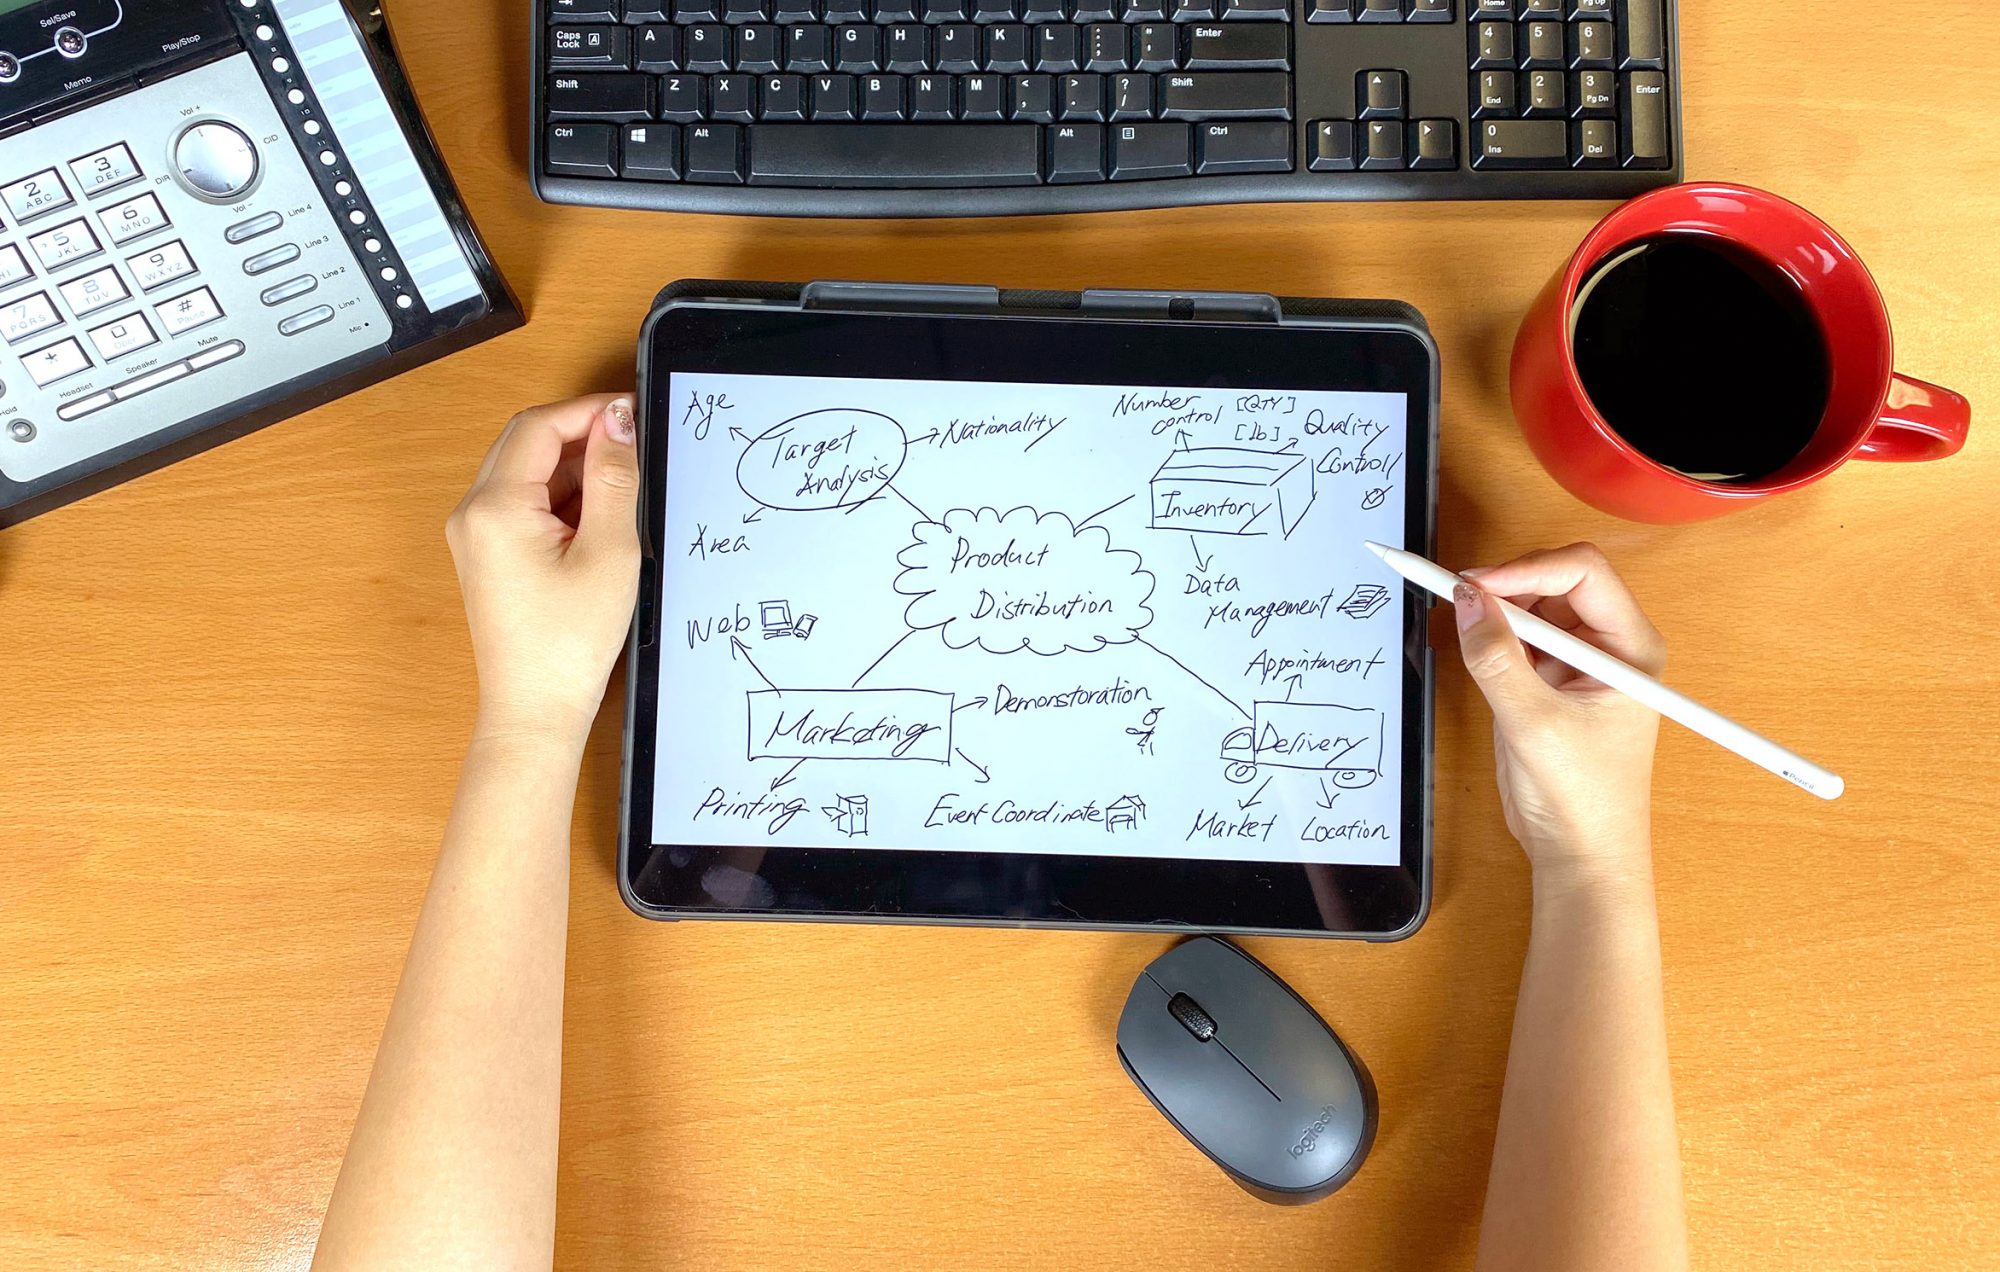 Sel/Save
Play/Stop
Memo
Vol +
CID
DIR
Vol -
2
ABC
3
DEF
5
JKL
6
MNO
7
PQRS
8
TUV
9
WXYZ
*
0
Oper
#
Pause
Line 4
Line 3
Line 2
Line 1
Mic
Headset
Speaker
Mute
Hold
Caps Lock A
A S D F G H J K L : ; " ' Enter
Shift Z X C V B N M < , > . ? / Shift
Ctrl Alt Alt Ctrl
Home
Pg Up
4 5 6
1 End 2 3 Pg Dn Enter
0 Ins . Del
Age
Target
Analysis
Nationality
Area
Number
control
[QTY]
[lb]
Quality
Control
Inventory
Data
Management
Product
Distribution
Web
Marketing
Demonstoration
Printing
Event Coordinate
Appointment
Delivery
Market
Location
Pencil
logitech